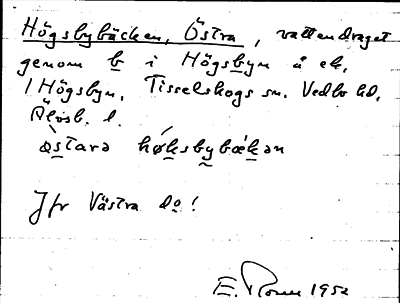 Högsbybäcken, Östra, vattendraget
genom b i Högsbyn å ek.
1 Högsbyn, Tisselskogs sn. Vedbo hd,
Älvsb. l.
östarə høksbybækən
Jfr Västra do!
E. 1952